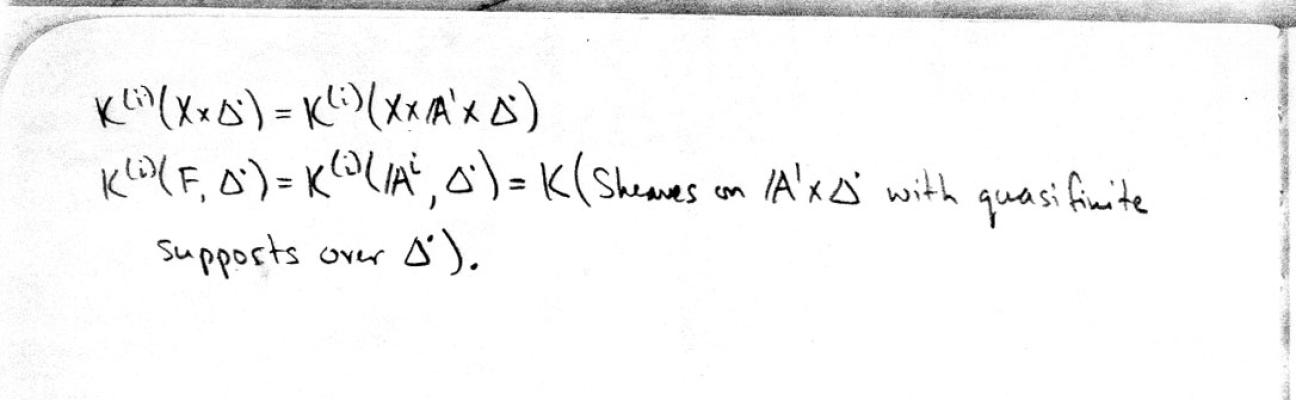 K^{(i)}(X×Δ^·) = K^{(i)}(X×𝔸^1×Δ^·)
K^{(i)}(F, Δ^·) = K^{(i)}(𝔸^i, Δ^·) = K(Sheaves on 𝔸^1×Δ^· with quasifinite
supports over Δ^·).